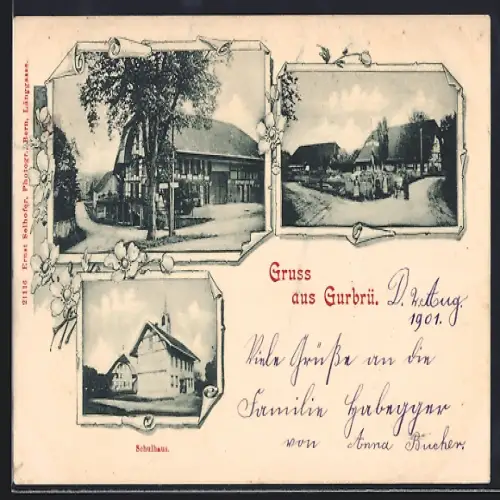 21116 Ernst Selhofer, Photogr., Bern, Länggasse.
Gruss
aus Gurbrü.
D. 2. Aug.
1901.
Viele Grüße an die
Familie Habegger
von Anna Bucher.
Schulhaus.